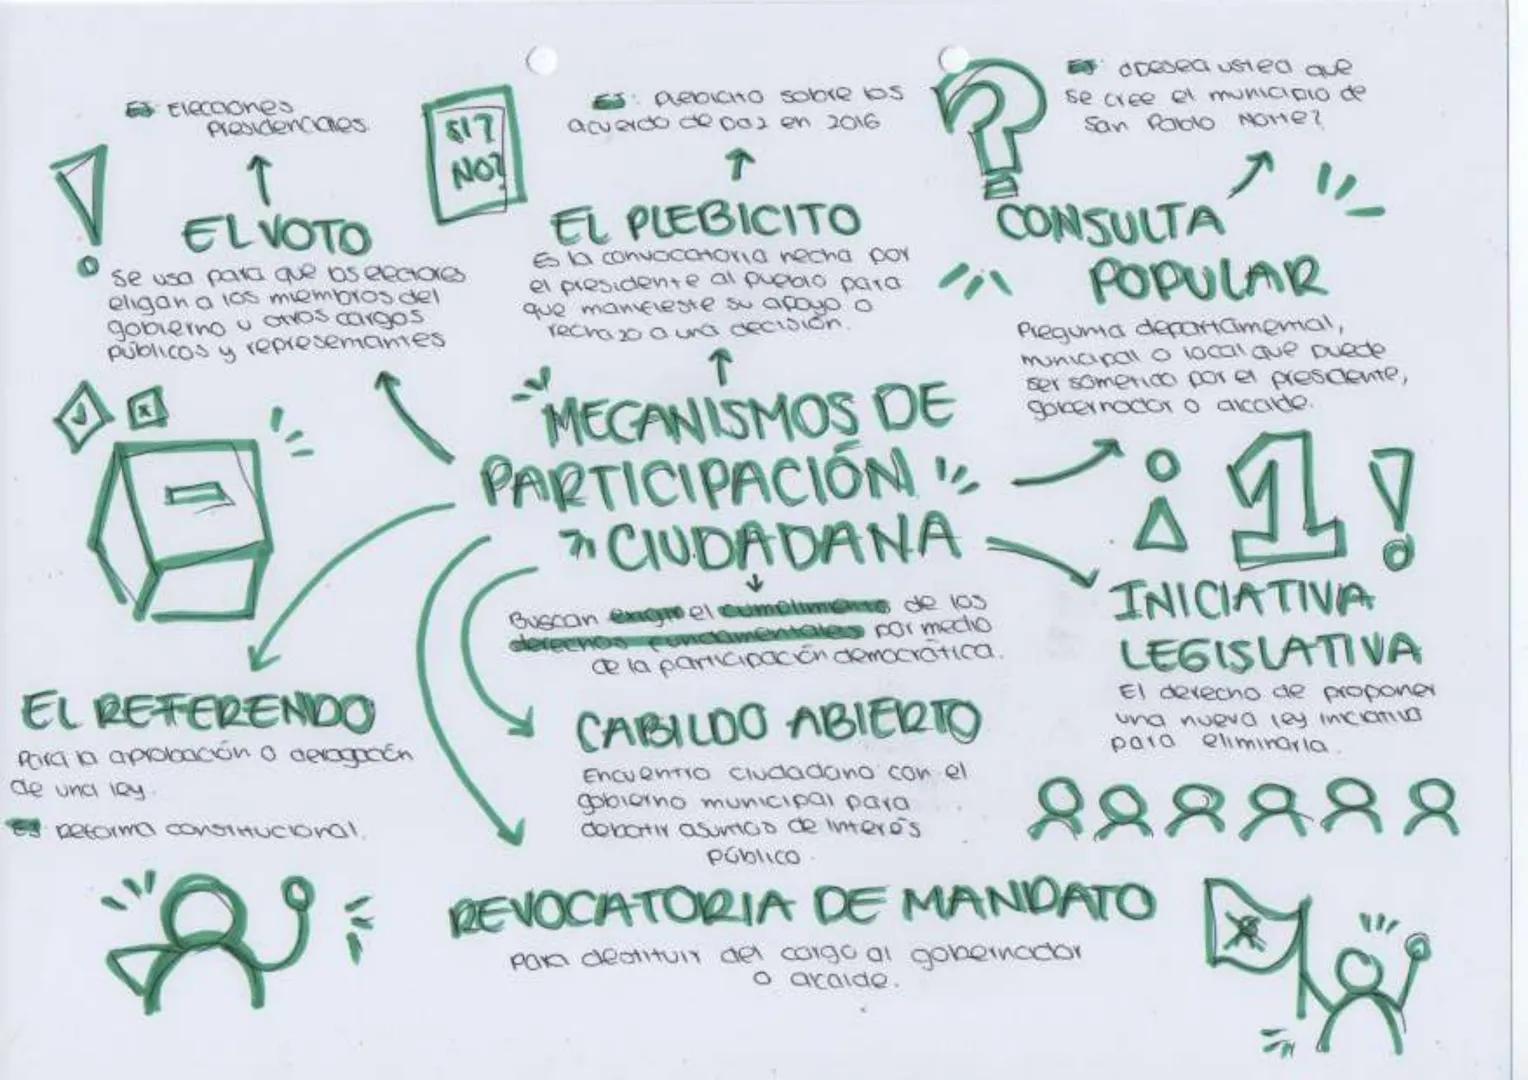 EJ: Elecciones
presidenciales.
EL VOTO
Se usa para que los electores
eligan a los miembros del
gobierno u otros cargos
públicos y representantes
SI?
NO?
EJ: Plebicito sobre los
acuerdo de paz en 2016
EL PLEBICITO
Es la convocatoria hecha por
el presidente al pueblo para
que manifieste su apoyo o
rechazo a una decisión.
EJ: ¿Desea usted que
se cree el municipio de
San Pablo Norte?
CONSULTA
POPULAR
Pregunta departamental,
municipal o local que puede
ser sometido por el presidente,
gobernador o alcalde.
MECANISMOS DE
PARTICIPACIÓN
CIUDADANA
Buscan el cumplimiento de los
derechos fundamentales por medio
de la participación democrática.
1
INICIATIVA
LEGISLATIVA
El derecho de proponer
una nueva ley inciativa
para eliminarla.
EL REFERENDO
Para la aprobación o derogación
de una ley.
EJ: Reforma constitucional.
CABILDO ABIERTO
Encuentro ciudadano con el
gobierno municipal para
debatir asuntos de interés
público.
REVOCATORIA DE MANDATO
Para destituir del cargo al gobernador
o alcalde.